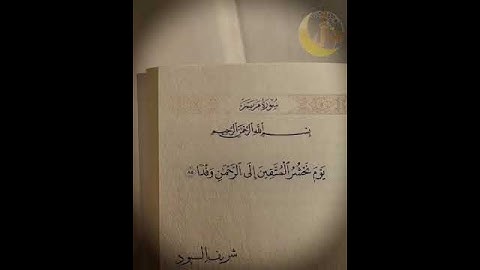 سُورَةُ مَرْيَمَ
بِسْمِ اللَّهِ الرَّحْمَٰنِ الرَّحِيمِ
يَوْمَ نَحْشُرُ الْمُتَّقِينَ إِلَى الرَّحْمَٰنِ وَفْدًا ٨٥